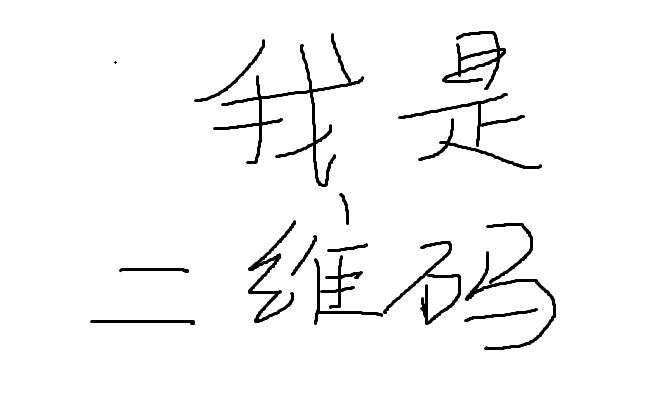 我是
二维码